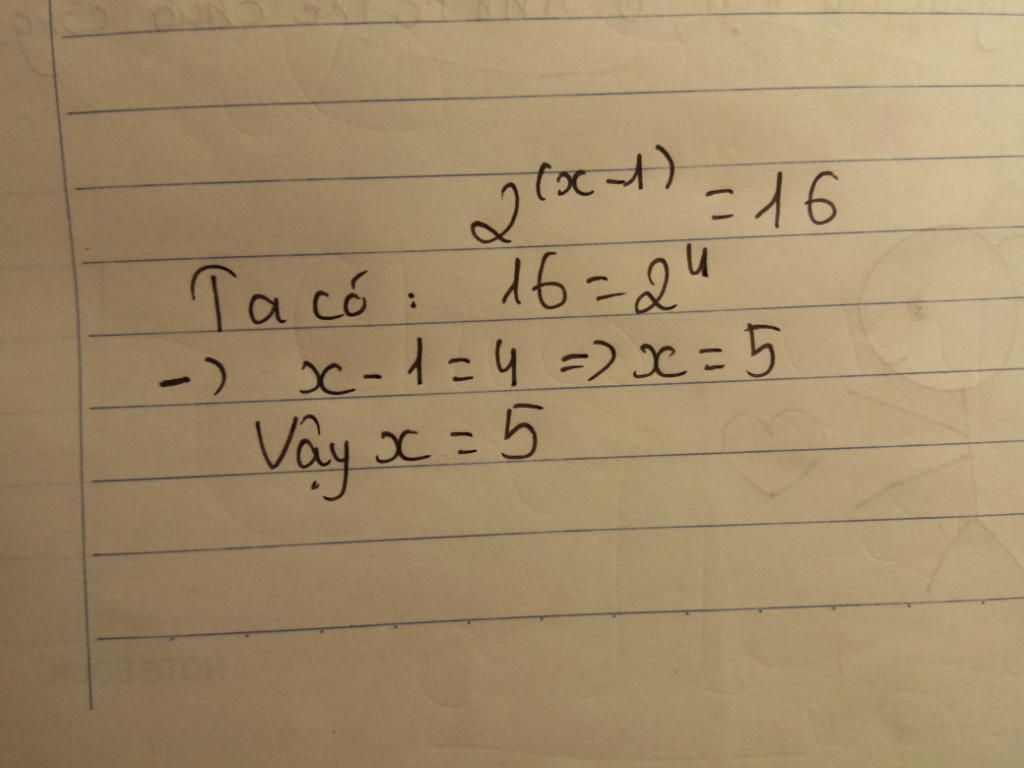 2^(x-1) = 16
Ta có: 16 = 2^4
-> x - 1 = 4 => x = 5
Vậy x = 5
NOTEBOOK